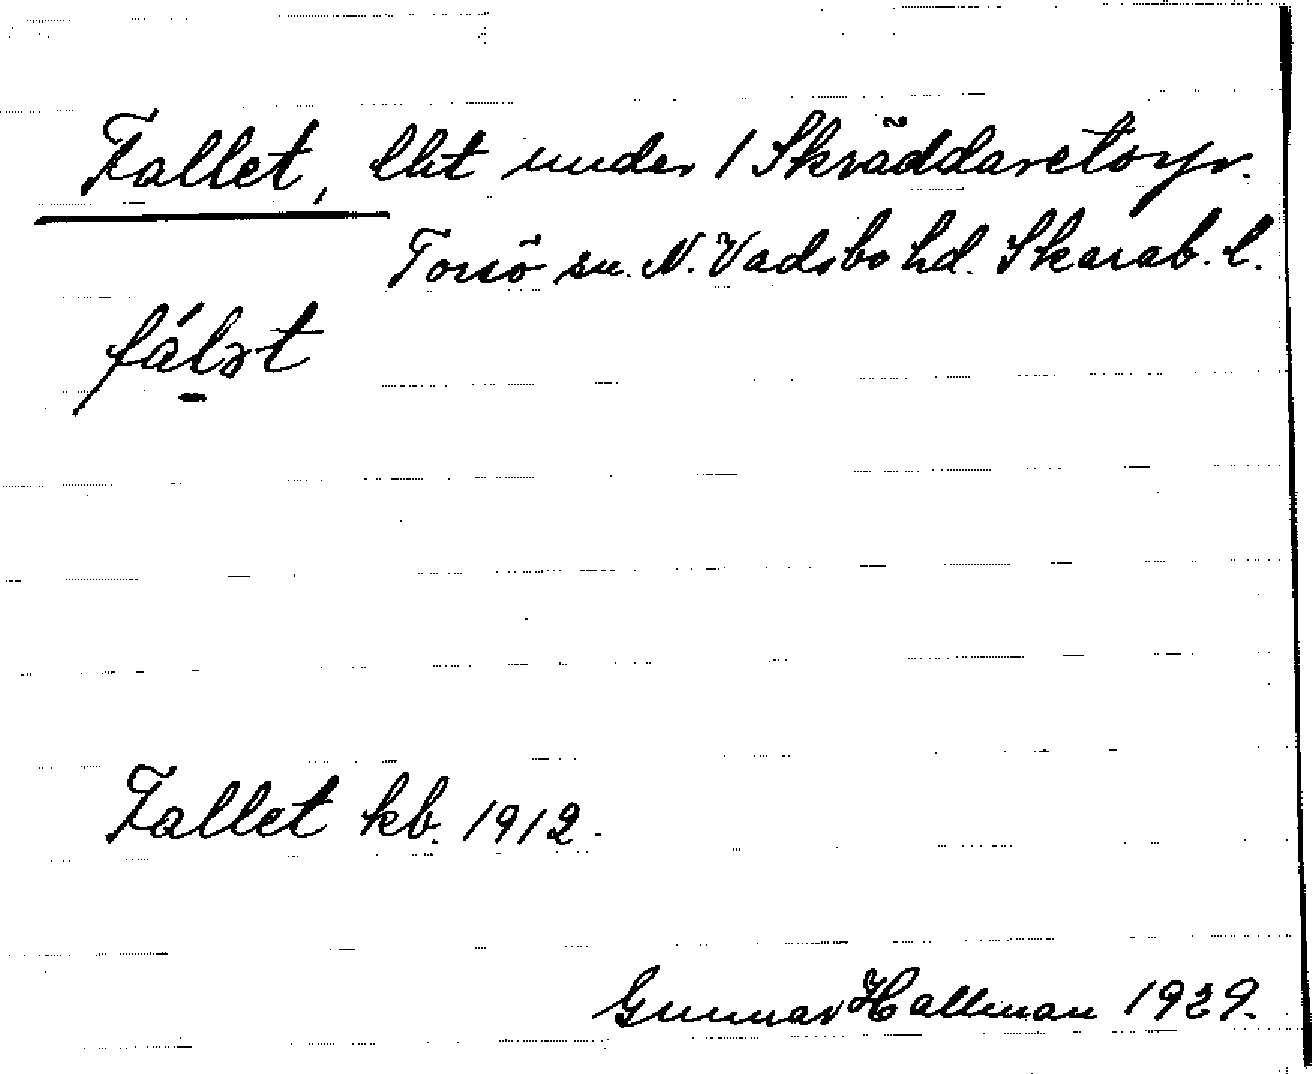 Fallet, lht under 1 Skräddaretorp.
Torsö sn. N. Vadsbo hd. Skarab. l.
fálət
Fallet kb. 1912.
Gunnar Hallman 1929.